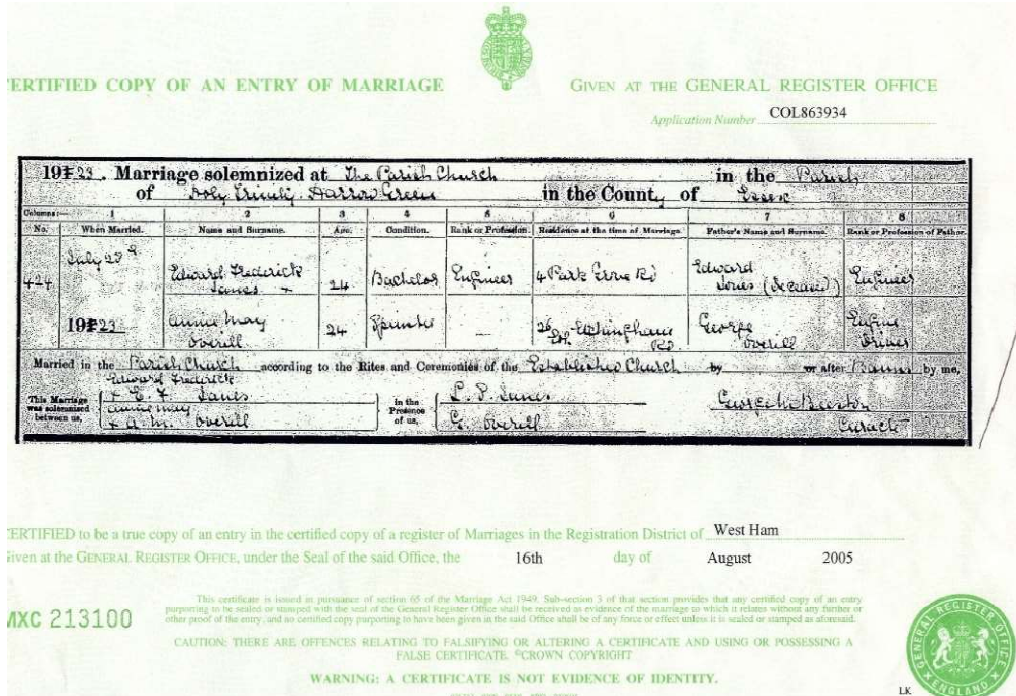 CERTIFIED COPY OF AN ENTRY OF MARRIAGE
GIVEN AT THE GENERAL REGISTER OFFICE
Application Number COL863934
1923. Marriage solemnized at The Parish Church in the Parish
of Holy Trinity Harrow Green in the County of Essex
Columns:— 1 2 3 4 5 6 7 8
No. When Married. Name and Surname. Age. Condition. Rank or Profession. Residence at the time of Marriage. Father's Name and Surname. Rank or Profession of Father.
424 July 28th Edward Frederick 24 Bachelor Engineer 4 Park Grove Rd Edward (deceased) Engineer
1923 Annie May Overill 24 Spinster — 26 Etchingham Rd George Overill Engine Driver
Married in the Parish Church according to the Rites and Ceremonies of the Established Church by or after Banns by me,
This Marriage was solemnized between us,
Edward Frederick
E. F.
Annie May
A. M. Overill
in the Presence of us,
G. Overill
Curate
CERTIFIED to be a true copy of an entry in the certified copy of a register of Marriages in the Registration District of West Ham
Given at the GENERAL REGISTER OFFICE, under the Seal of the said Office, the 16th day of August 2005
MXC 213100
This certificate is issued in pursuance of section 65 of the Marriage Act 1949. Sub-section 3 of that section provides that any certified copy of an entry
purporting to be sealed or stamped with the seal of the General Register Office shall be received as evidence of the marriage to which it relates without any further or
other proof of the entry, and no certified copy purporting to have been given in the said Office shall be of any force or effect unless it is sealed or stamped as aforesaid.
CAUTION: THERE ARE OFFENCES RELATING TO FALSIFYING OR ALTERING A CERTIFICATE AND USING OR POSSESSING A
FALSE CERTIFICATE. ©CROWN COPYRIGHT
WARNING: A CERTIFICATE IS NOT EVIDENCE OF IDENTITY.
GENERAL REGISTER OFFICE
ENGLAND
LK